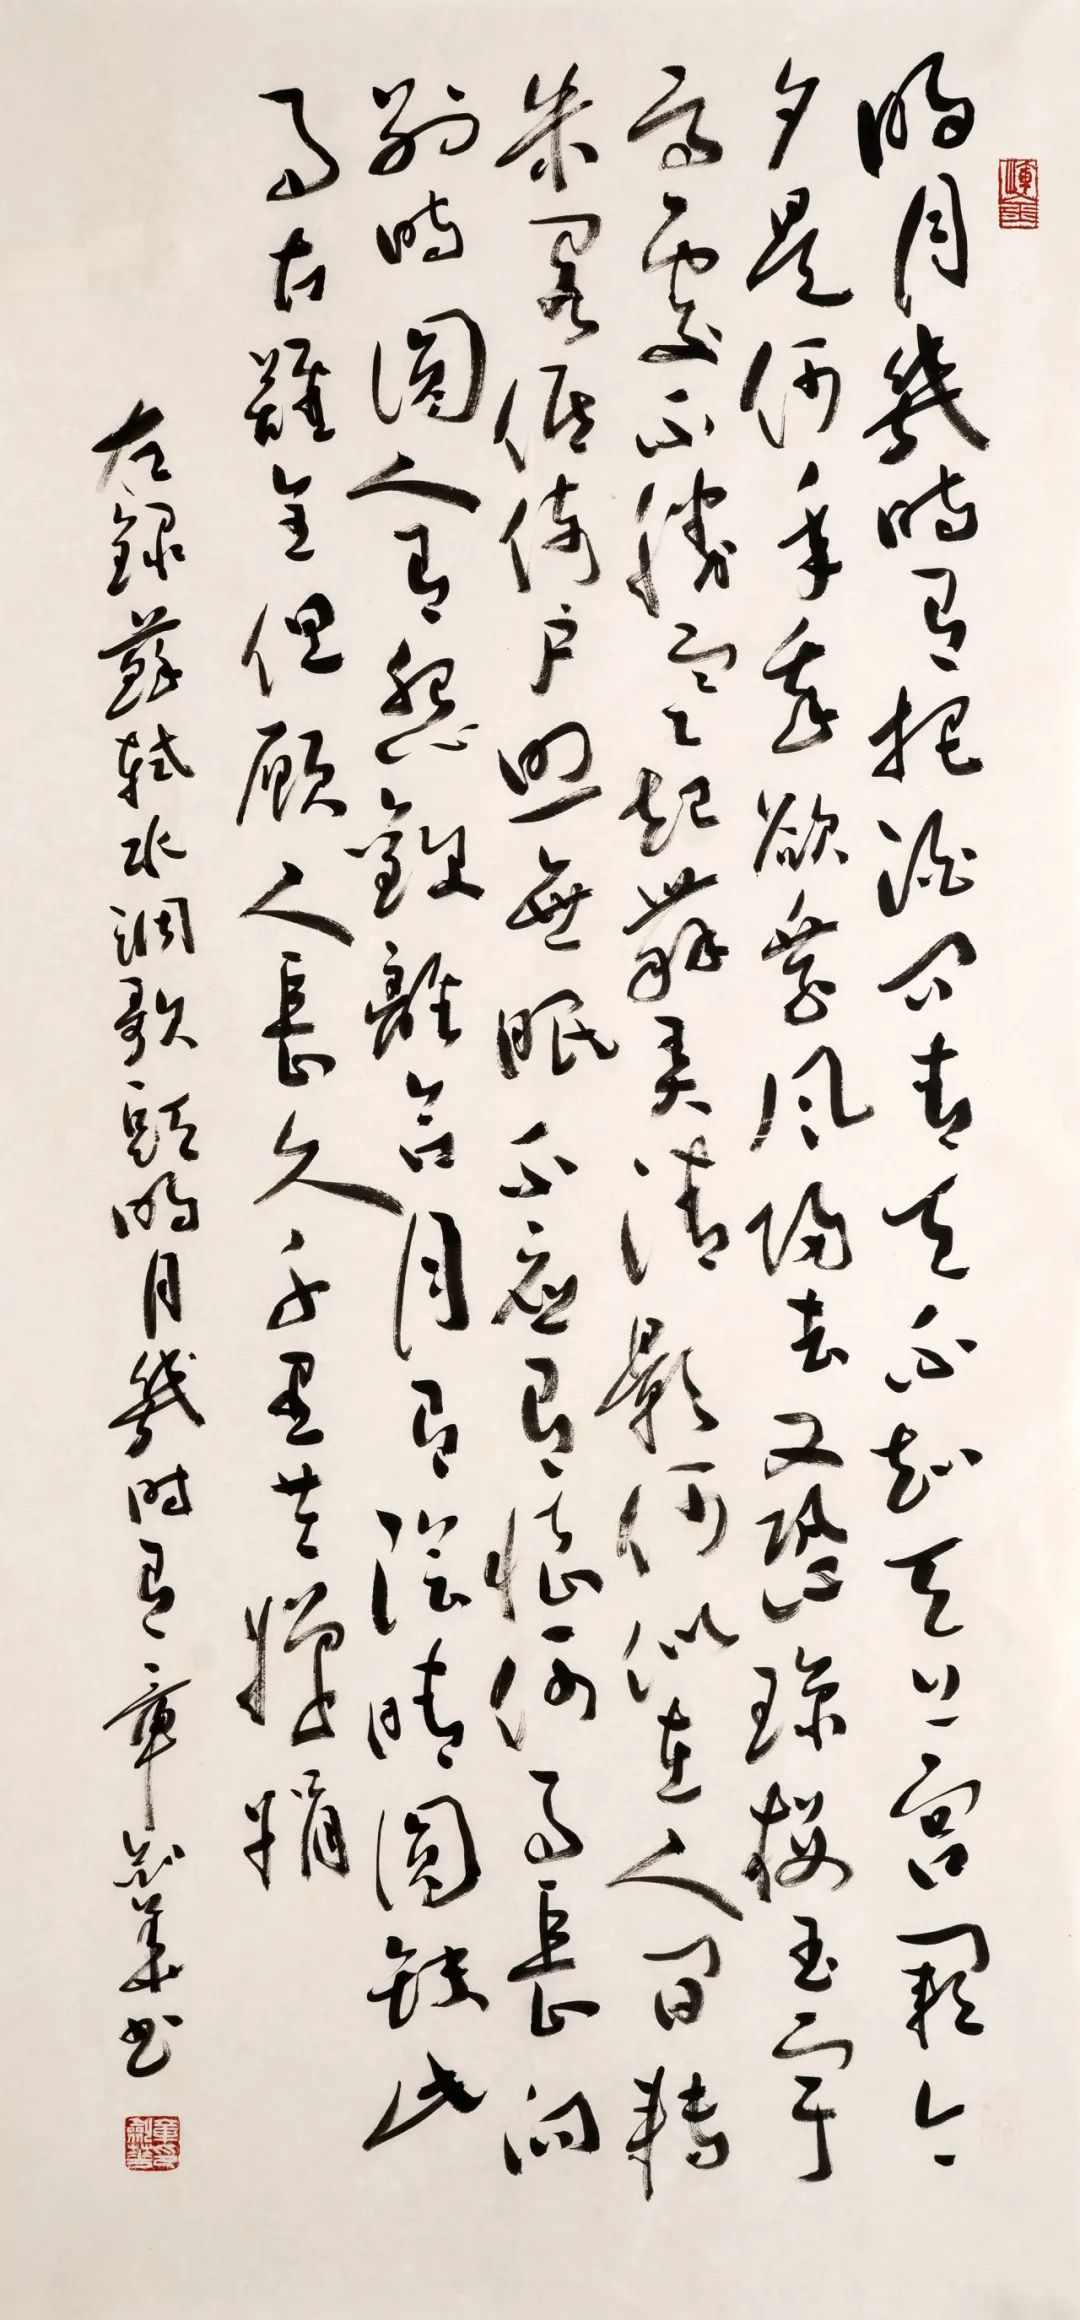 明月幾時有把酒問青天不知天上宮闕今
夕是何年我欲乘風歸去又恐瓊樓玉宇
高處不勝寒起舞弄清影何似在人間轉
朱閣低倚戶照無眠不應有恨何事長向
別時圓人有悲歡離合月有陰晴圓缺此
事古難全但願人長久千里共嬋娟
左錄蘇軾水調歌頭明月幾时有章劍華书